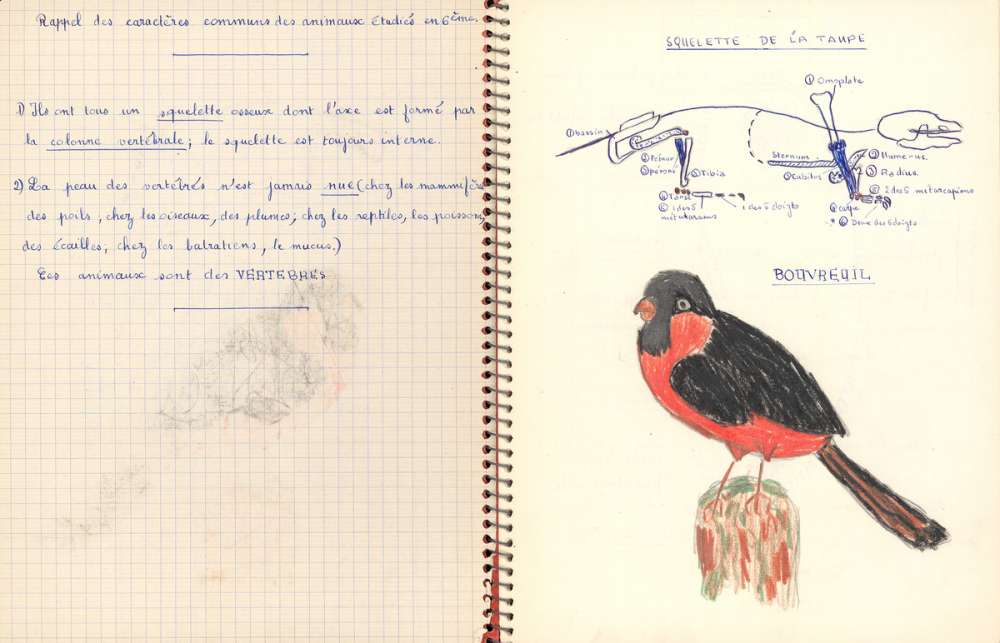 Rappel des caractères communs des animaux étudiés en 6ème.
1) Ils ont tous un squelette osseux dont l'axe est formé par
la colonne vertébrale; le squelette est toujours interne.
2) La peau des vertébrés n'est jamais nue (chez les mammifères
des poils, chez les oiseaux, des plumes; chez les reptiles, les poissons,
des écailles; chez les batratiens, le mucus.)
Ces animaux sont des VERTEBRES
SQUELETTE DE LA TAUPE
① Omoplate
① bassin
② Fémur
③ péroné
③ Tibia
④ Tarse
⑤ 1 des 5
métatarsiens
1 des 5 doigts
Sternum
③ Cubitus
② Humérus.
③ Radius.
⑤ 2 des 5 métacarpiens
④ carpe
⑥ Deux des 5 doigts
BOUVREUIL